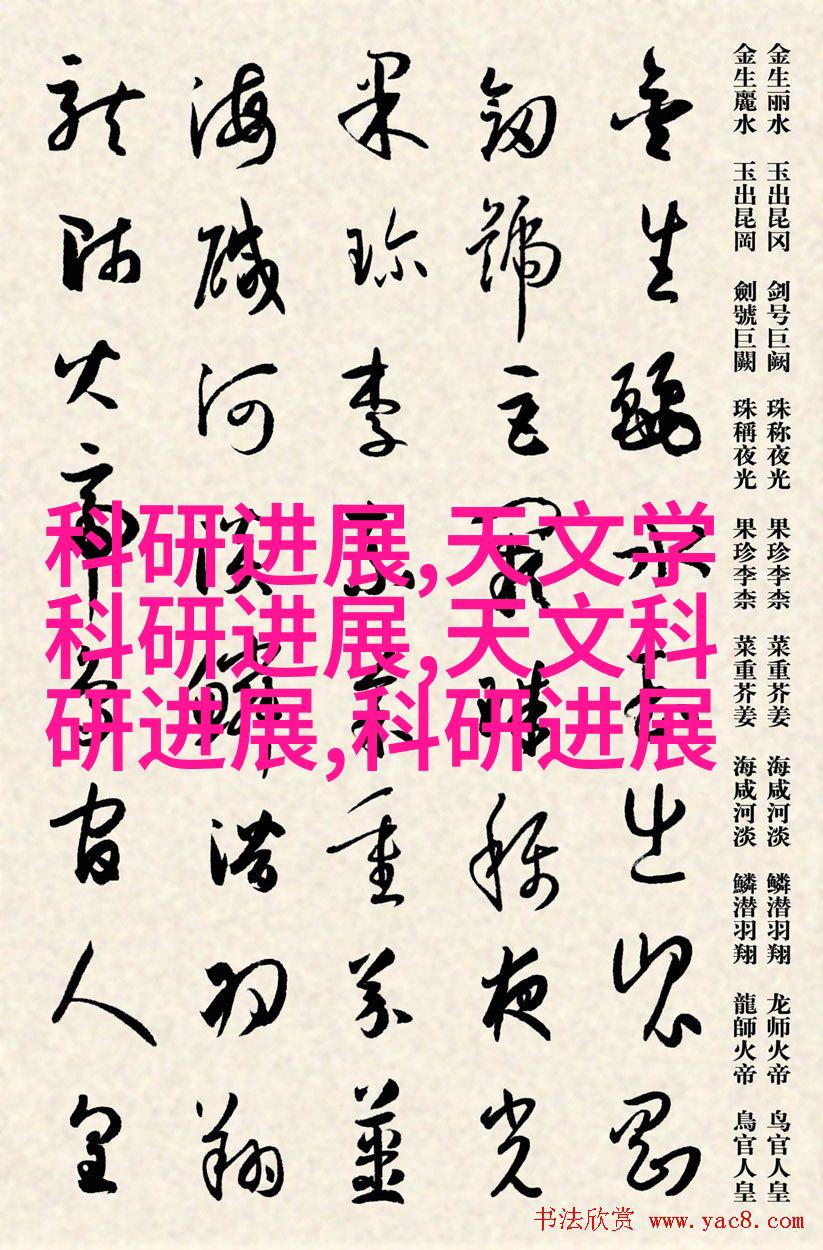 金生丽水 玉出昆冈 剑号巨阙 珠称夜光 果珍李柰 菜重芥姜 海咸河淡 鳞潜羽翔 龙师火帝 鸟官人皇
金生麗水 玉出昆岡 劍號巨闕 珠稱夜光 果珍李柰 菜重芥姜 海咸河淡 鱗潜羽翔 龍師火帝 鳥官人皇
金生麗水玉出崑岡
劒號巨闕珠稱夜光
果珍李柰菜重芥薑
海醎河淡鱗潜羽翔
龍師火帝鳥官人皇
科研进展,天文学
科研进展,天文科
研进展,科研进展
书法欣赏 www.yac8.com